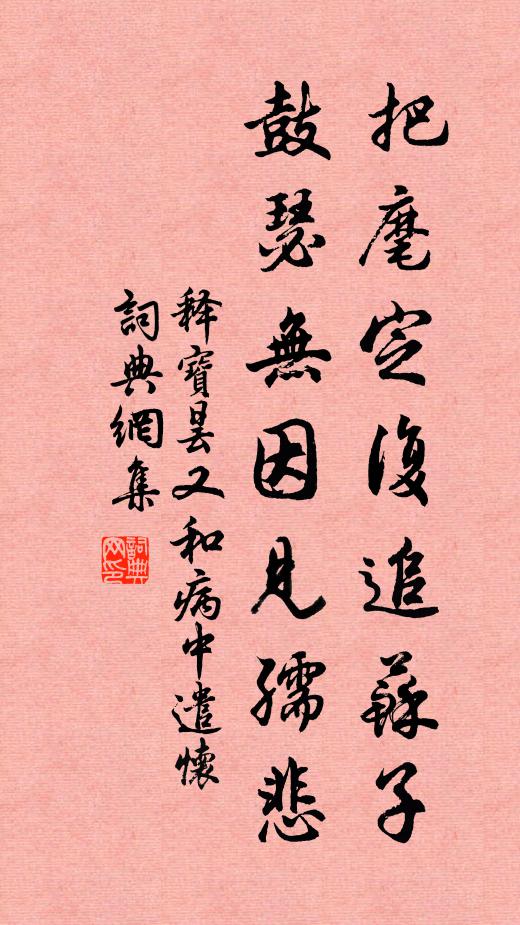 把麾定復追蘇子
鼓瑟無因見孺悲
释寶曇又和病中遣懷
詞典網集
詞典网印